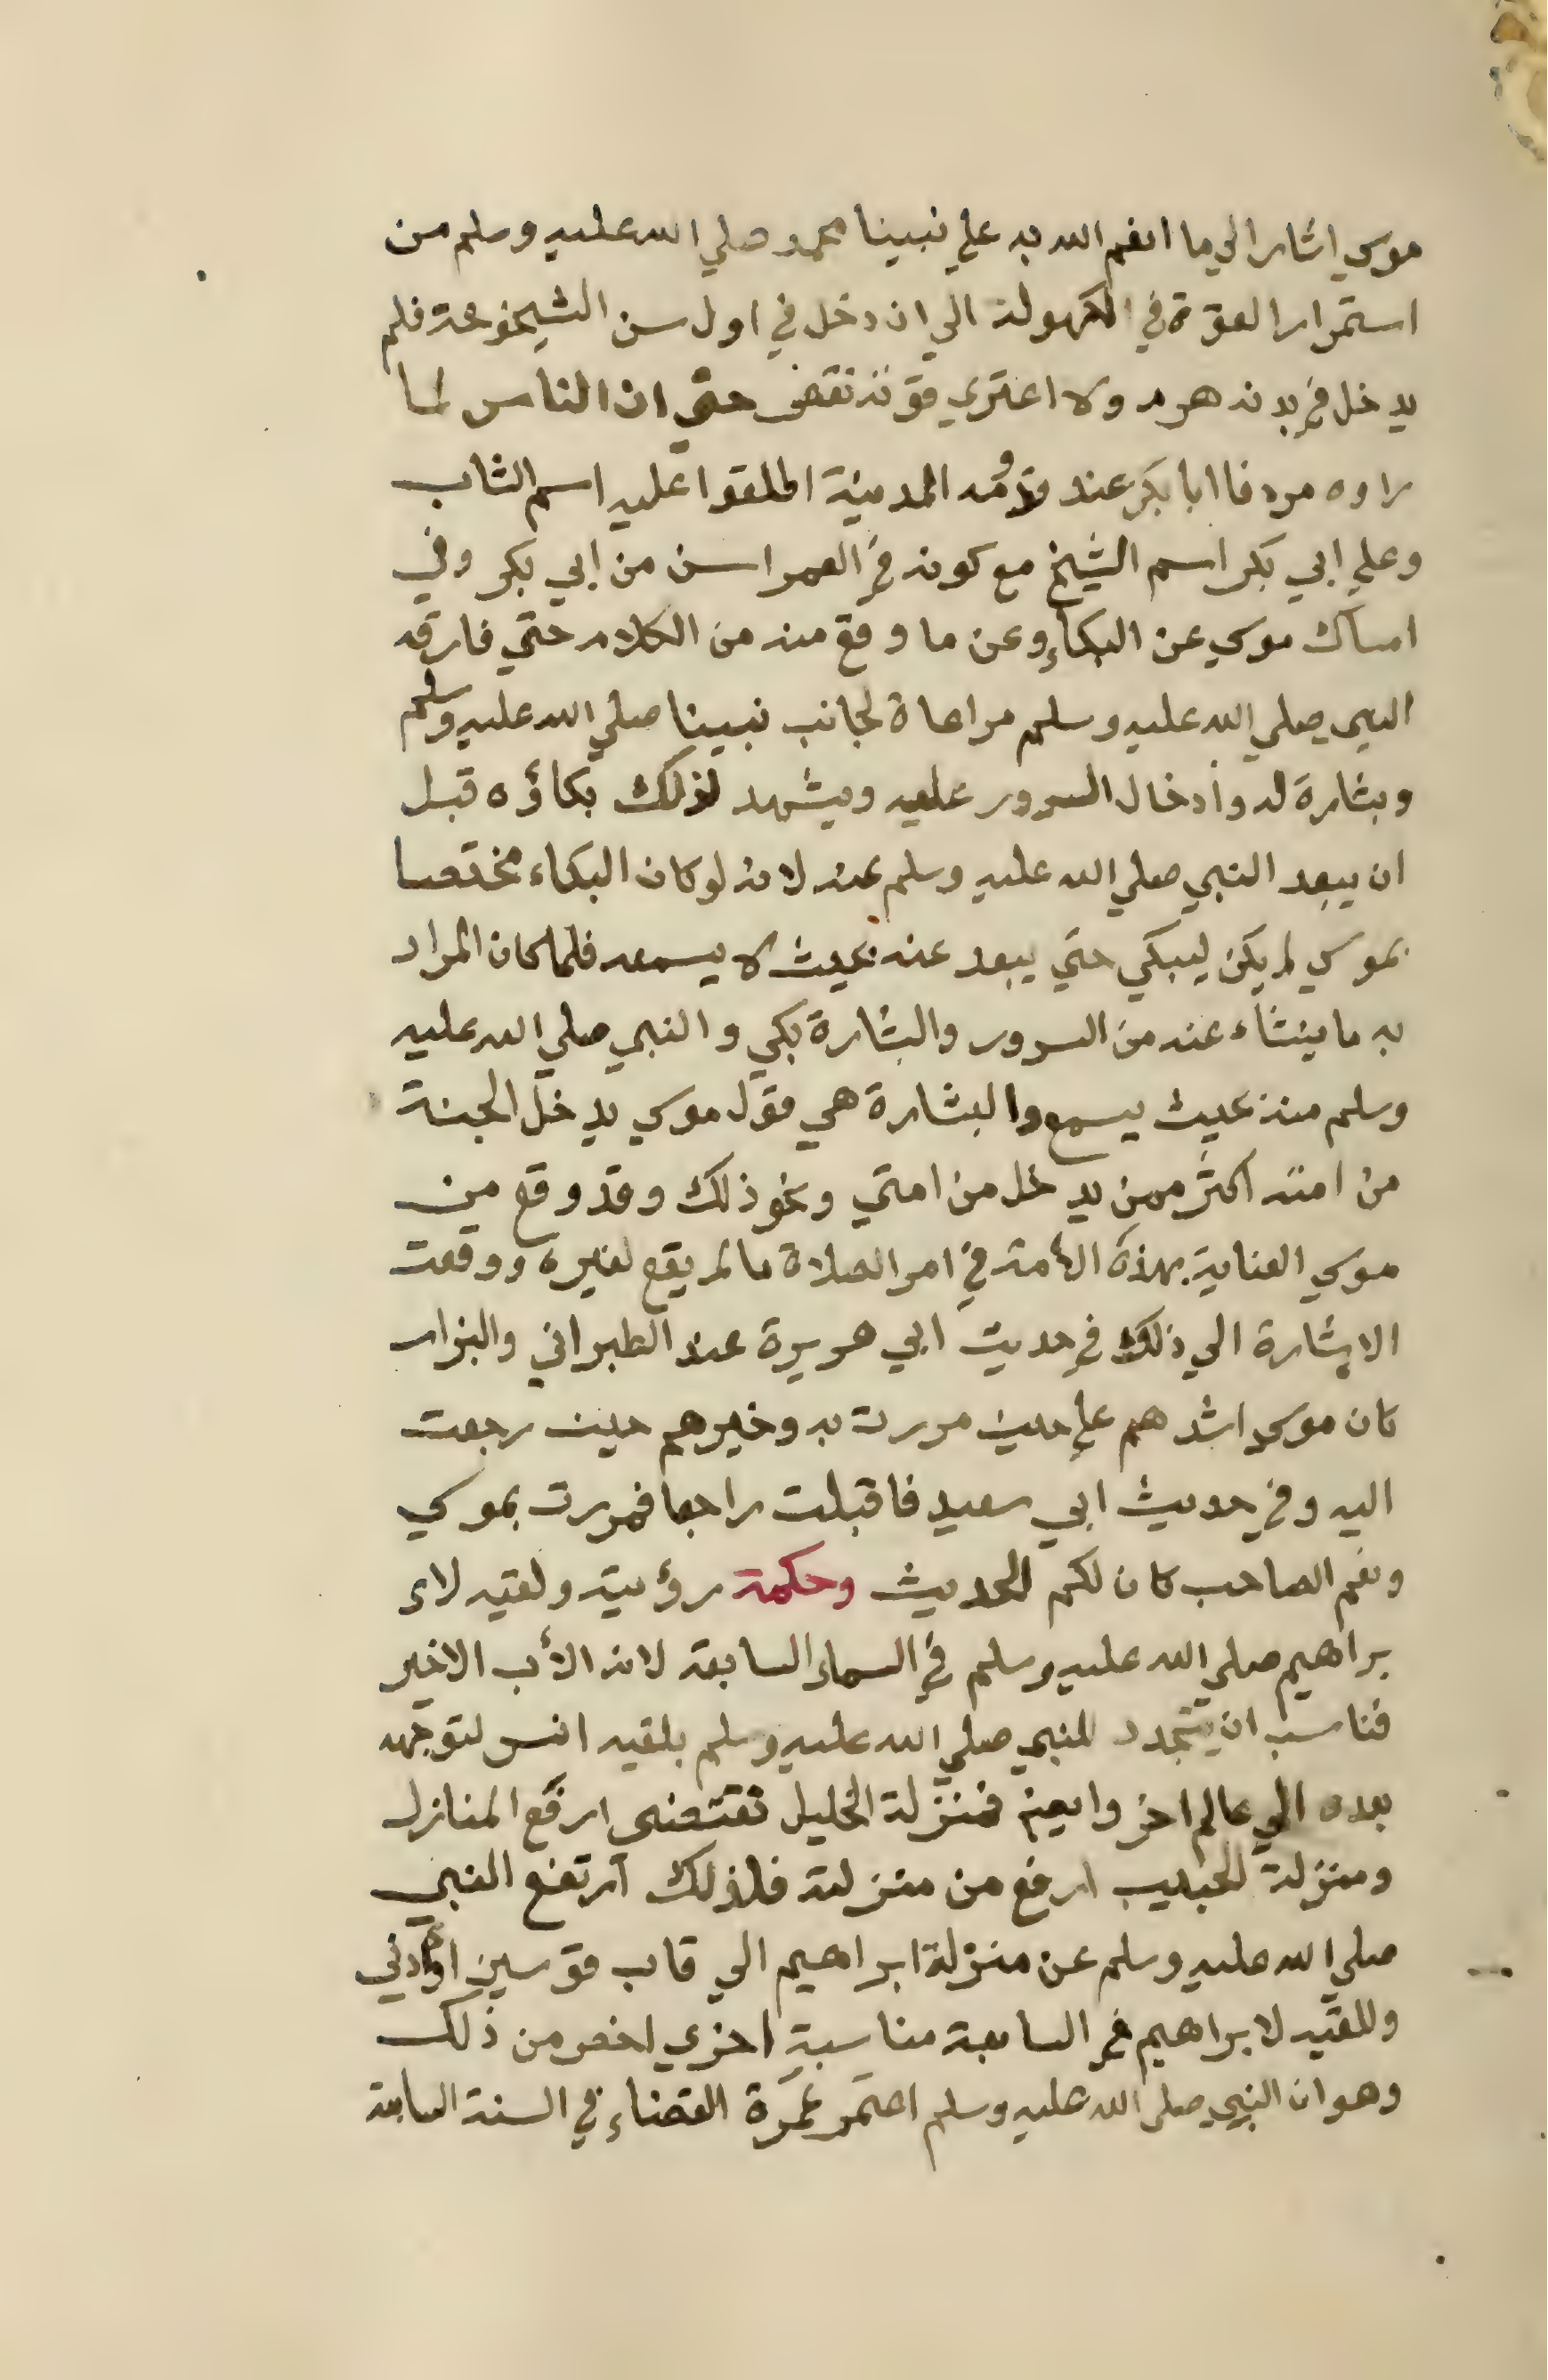 موسي اشار الي ما انعم الله به علي نبينا محمد صلي الله عليه وسلم من
استمرار القوة في الكهولة الي ان دخل في اول سن الشيخوخة فلم
يدخل في بدنه هرم ولا اعتري قوته نقض حتي ان الناس لما
راوه مردفا ابا بكر عند قدومه المدينة اطلقوا عليه اسم الشاب
وعلي ابي بكر اسم الشيخ مع كونه في العمر اسن من ابي بكر وفي
امساك موسي عن البكاء وعن ما وقع منه من الكلام حتي فارقه
النبي صلي الله عليه وسلم مراعاة لجانب نبينا صلي الله عليه وسلم
وبشارة له وأدخال السرور عليه ويشهد لذلك بكاؤه قبل
ان يبعد النبي صلي الله عليه وسلم عنه لانه لو كان البكاء مختصا
بموسي لم يكن ليبكي حتي يبعد عنه بحيث لا يسمعه فلما كان المراد
به ما ينشاء عنه من السرور والبشارة بكي والنبي صلي الله عليه
وسلم منه بحيث يسمع والبشارة هي قول موسي يدخل الجنة
من امته اكثر ممن يدخل من امتي ونحو ذلك وقد وقع من
موسي العناية بهذه الأمة في امر الصلاة ما لم يقع لغيره ووقعت
الاشارة الي ذلك في حديث ابي هريرة عند الطبراني والبزار
كان موسي اشدهم علي حين مررت به وخيرهم حين رجعت
اليه وفي حديث ابي سعيد فاقبلت راجعا فمررت بموسي
ونعم الصاحب كان لكم الحديث وحكمة رؤيته ولقيه لاء
براهيم صلي الله عليه وسلم في السماء السابعة لانه الأب الاخير
فناسب ان يتجدد للنبي صلي الله عليه وسلم بلقيه انس لتوجهه
بعده الي عالم اخر وايضا فمنزلة الخليل تقتضي ارفع المنازل
ومنزلة الحبيب ارفع من منزلته فلذلك ارتفع النبي
صلي الله عليه وسلم عن منزلة ابراهيم الي قاب قوسين او ادني
وللقيه لابراهيم في السابعة مناسبة اخري اخص من ذلك
وهو ان النبي صلي الله عليه وسلم اعتمر عمرة القضاء في السنة السابعة